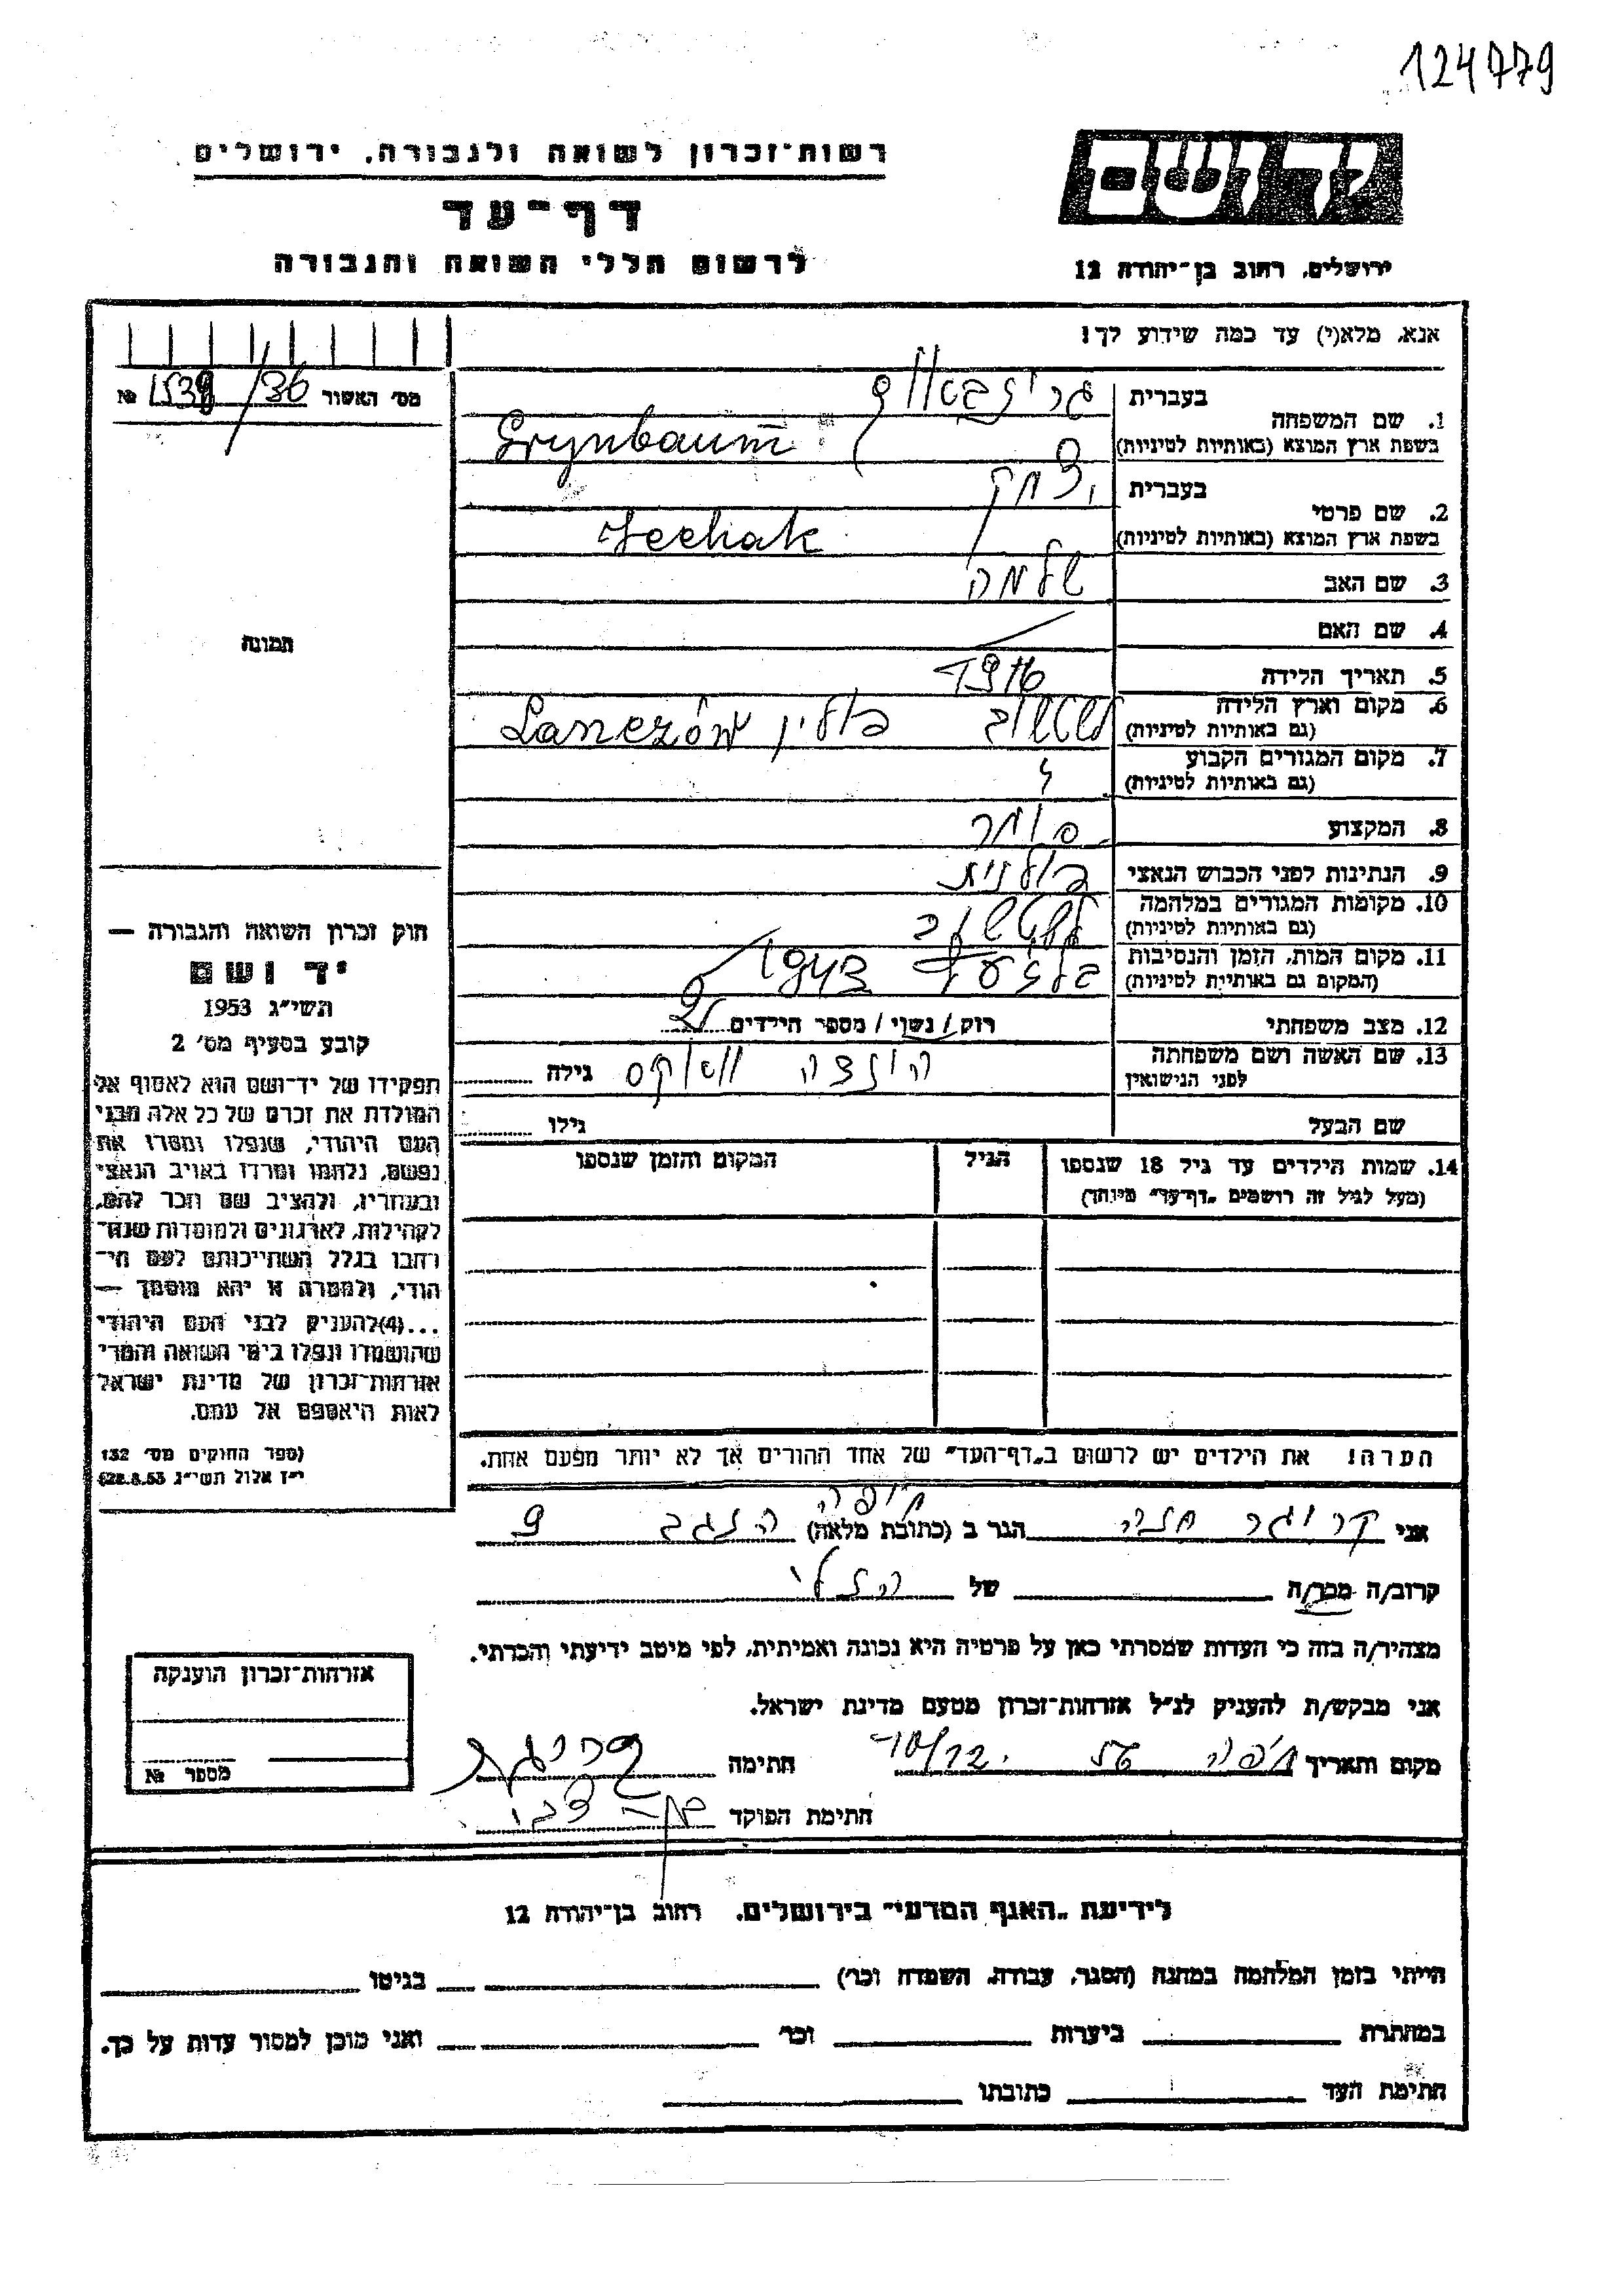 124779
רשות־זכרון לשואה ולגבורה, ירושלים
ידושם
דף־עד
לרשום חללי השואה והגבורה
ירושלים, רחוב בן־יהודה 12
אנא, מלא(י) עד כמה שידוע לך!
מס׳ האשור 1539/36 №
בעברית
1. שם המשפחה
בשפת ארץ המוצא (באותיות לטיניות) Grynbaum
בעברית יצחק
2. שם פרטי
בשפת ארץ המוצא (באותיות לטיניות) Icchak
3. שם האב שלמה
4. שם האם
תמונה
5. תאריך הלידה
6. מקום וארץ הלידה פולין
(גם באותיות לטיניות)
7. מקום המגורים הקבוע
(גם באותיות לטיניות)
8. המקצוע סוחר
9. הנתינות לפני הכבוש הנאצי פולנית
10. מקומות המגורים במלחמה
(גם באותיות לטיניות)
11. מקום המות, הזמן והנסיבות
(המקום גם באותיות לטיניות)
12. מצב משפחתי רוק/נשוי/מספר הילדים 2
13. שם האשה ושם משפחתה גילה
לפני הנישואין
שם הבעל גילו
14. שמות הילדים עד גיל 18 שנספו הגיל המקום והזמן שנספו
(מעל לגיל זה רושמים „דף־עד״ מיוחד)
הערה! את הילדים יש לרשום ב„דף־העד״ של אחד ההורים אך לא יותר מפעם אחת.
חוק זכרון השואה והגבורה —
יד ושם
תשי״ג 1953
קובע בסעיף מס׳ 2
תפקידו של יד־ושם הוא לאסוף אל
המולדת את זכרם של כל אלה מבני
העם היהודי, שנפלו ומסרו את
נפשם, נלחמו ומרדו באויב הנאצי
ובעוזריו, ולהציב שם וזכר להם,
לקהילות, לארגונים ולמוסדות שנח־
רבו בגלל השתייכותם לעם הי־
הודי, ולמטרה זו יהא מוסמך —
...(4)להעניק לבני העם היהודי
שהושמדו ונפלו בימי השואה והמרי
אזרחות־זכרון של מדינת ישראל
לאות היאספם אל עמם.
(ספר החוקים מס׳ 132
י״ז אלול תשי״ג 28.8.53)
חיפה
אני קרוגר חנה הגר ב (כתובת מלאה) הנגב 9
קרוב/ה מכר/ה של הנ״ל
מצהיר/ה בזה כי העדות שמסרתי כאן על פרטיה היא נכונה ואמיתית, לפי מיטב ידיעתי והכרתי.
אני מבקש/ת להעניק לנ״ל אזרחות־זכרון מטעם מדינת ישראל.
מקום ותאריך חיפה חתימה
חתימת הפוקד
אזרחות־זכרון הוענקה
מספר №
לידיעת „האגף המדעי״ בירושלים, רחוב בן־יהודה 12
הייתי בזמן המלחמה במחנה (הסגר, עבודה, השמדה וכו׳) בגיטו
במחתרת ביערות וכו׳ ואני מוכן למסור עדות על כך.
חתימת העד כתובתו